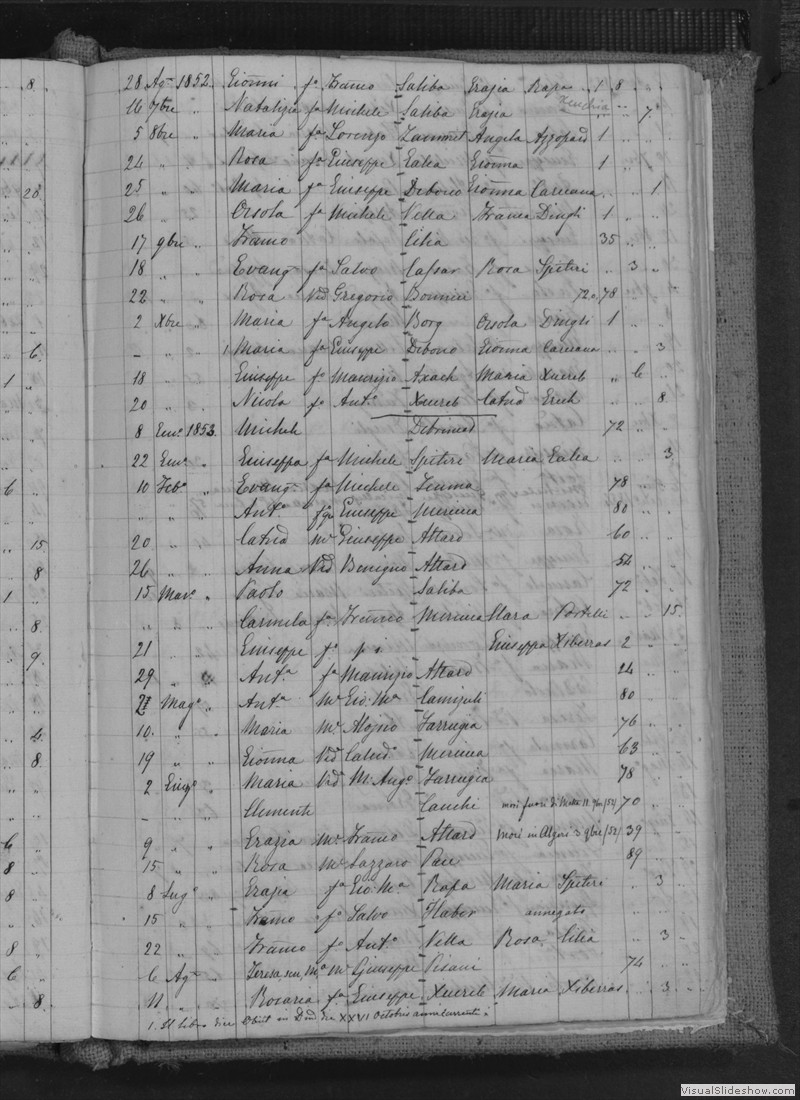 8. 28 Ag. 1852. Gioñni fo Franco Saliba Grazia Rapa 1 8 " "
16 7bre " Natalizia fa Michele Saliba Grazia " " 7
5 8bre " Maria fa Lorenzo Zammit Angela Azzopard 1 " "
24 " " Rosa fa Giuseppe Galea Gioñna 1 " "
28. 25 " " Maria fa Giuseppe Debono Gioñna Caruana " " 1
26 " " Orsola fa Michele Vella Franca Dingli 1 " "
17 9bre " Franco Cilia 35 " "
18 " " Evang. fa Salvo Cassar Rosa Spiteri " 3 "
22 " " Rosa Vid. Gregorio Bonnici 72 o 78
2 Xbre " Maria fa Angelo Borg Orsola Dingli 1 " "
6. - " " 1 Maria fa Giuseppe Debono Gioñna Caruana " " 3
1 " 18 " " Giuseppe fo Maurizio Axach Maria Xuereb " 6 "
20 " " Nicola fo Anto Xuereb Catnd Grech " " 8
8 Geno 1853. Michele 72 " "
22 Geno " Giuseppa fa Michele Spiteri Maria Galea " " 3
6 " 10 Febo " Evang. fa Michele Zamma 78 " "
" " " Anto Giuseppe Mercieca 80 " "
15. 20 " " Catnd Me Giuseppe Attard 60 " "
8 26 " " Anna Vid Benigno Attard 54 " "
1 " 15 Maro " Paolo Saliba 72 " "
8. " " " Carmela fa Franco Mercieca Clara Portelli " " 15
9. 21 " " Giuseppe fo Giuseppa Xiberras 2 " "
29 " " Anta fa Maurizio Attard 24 " "
27 Mago " Anta Me Gio: Ma Camizuli 80 " "
4. 10. " " Maria Me Alojsio Farrugia 76 " "
8. 19 " " Gioñna Vid Catnd. Mercieca 63 " "
2 Giugo " Maria Vid M: Ango Farrugia 78 " "
- " " Clemente Cauchi mori fuori di Malta 70 "
6 " 9 " " Grazia Me Franco Attard Mori in Algeri 3 9bre /52/ 39 " "
8 15 " " Rosa Me Lazzaro Pace 89 " "
8 8 Lugo " Grazia fa Gio: Ma Rapa Maria Spiteri " 3 "
15 " " Franco fo Salvo Haber annegato " "
8 22 " " Franco fo Anto Vella Rosa Cilia " 3 "
6 6 Ago " Teresa Me Giuseppe Pisani 74 " "
8. 11. " " Rosaria fa Giuseppe Xuereb Maria Xiberras " 3 "
XXVI Octobris anni currenti.
VisualSlideshow.com